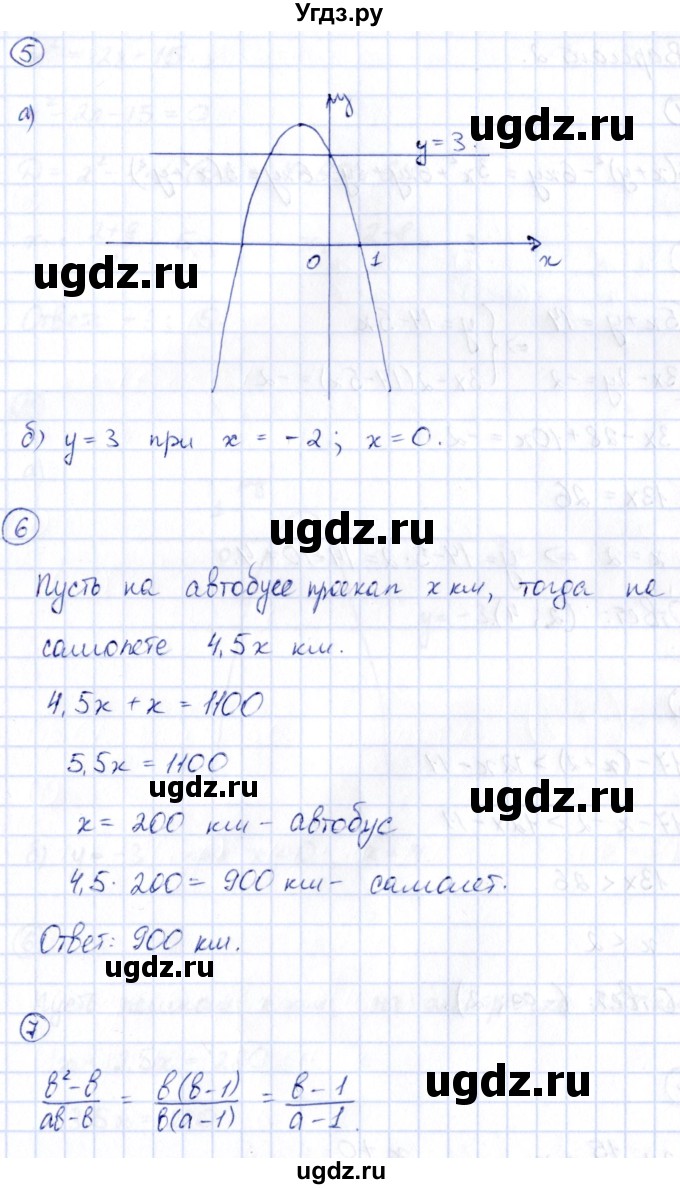 Угдз.ру
5
ugdz.ru
а)
y
y = 3.
0
1
x
ugdz.ru
б) y = 3 при x = -2; x = 0.
ugdz.ru
6
Пусть на автобусе проехал x км, тогда на
самолете 4,5x км.
4,5x + x = 1100
5,5x = 1100
ugdz.ru
ugdz.ru
x = 200 км - автобус
4,5 · 200 = 900 км - самолет.
Ответ: 900 км.
ugdz.ru
7
ugdz.ru
(в² - в)/(aв - в) = (в(в - 1))/(в(a - 1)) = (в - 1)/(a - 1).
ugdz.ru